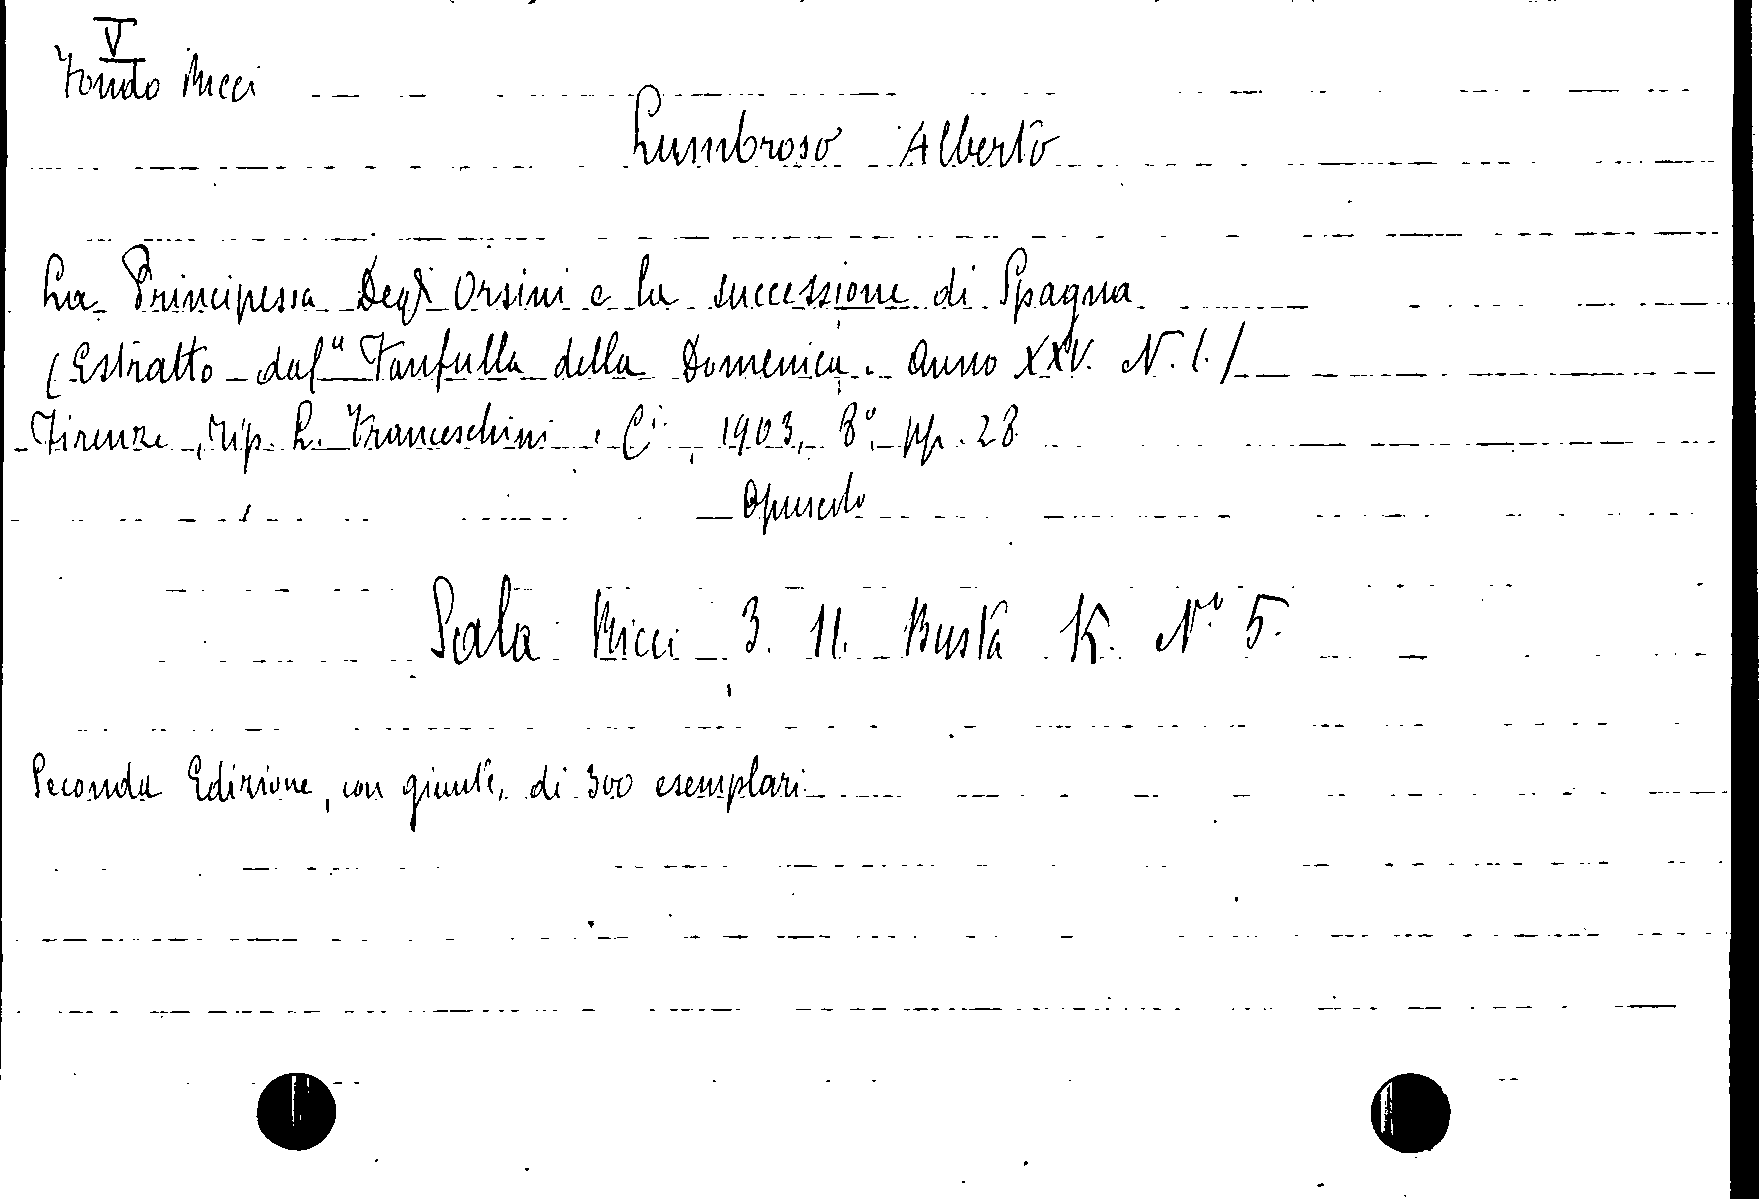 V
Fondo Ricci
Lumbroso Alberto
La Principessa Degli Orsini e la successione di Spagna
(Estratto dal "Fanfulla della Domenica. Anno XXV. N. 1./
Firenze, Tip. L. Franceschini e Ci, 1903, 8°. pp. 28
Opuscolo
Sala Ricci 3. 11. Busta K. N° 5.
Seconda Edizione, con giunte, di 300 esemplari